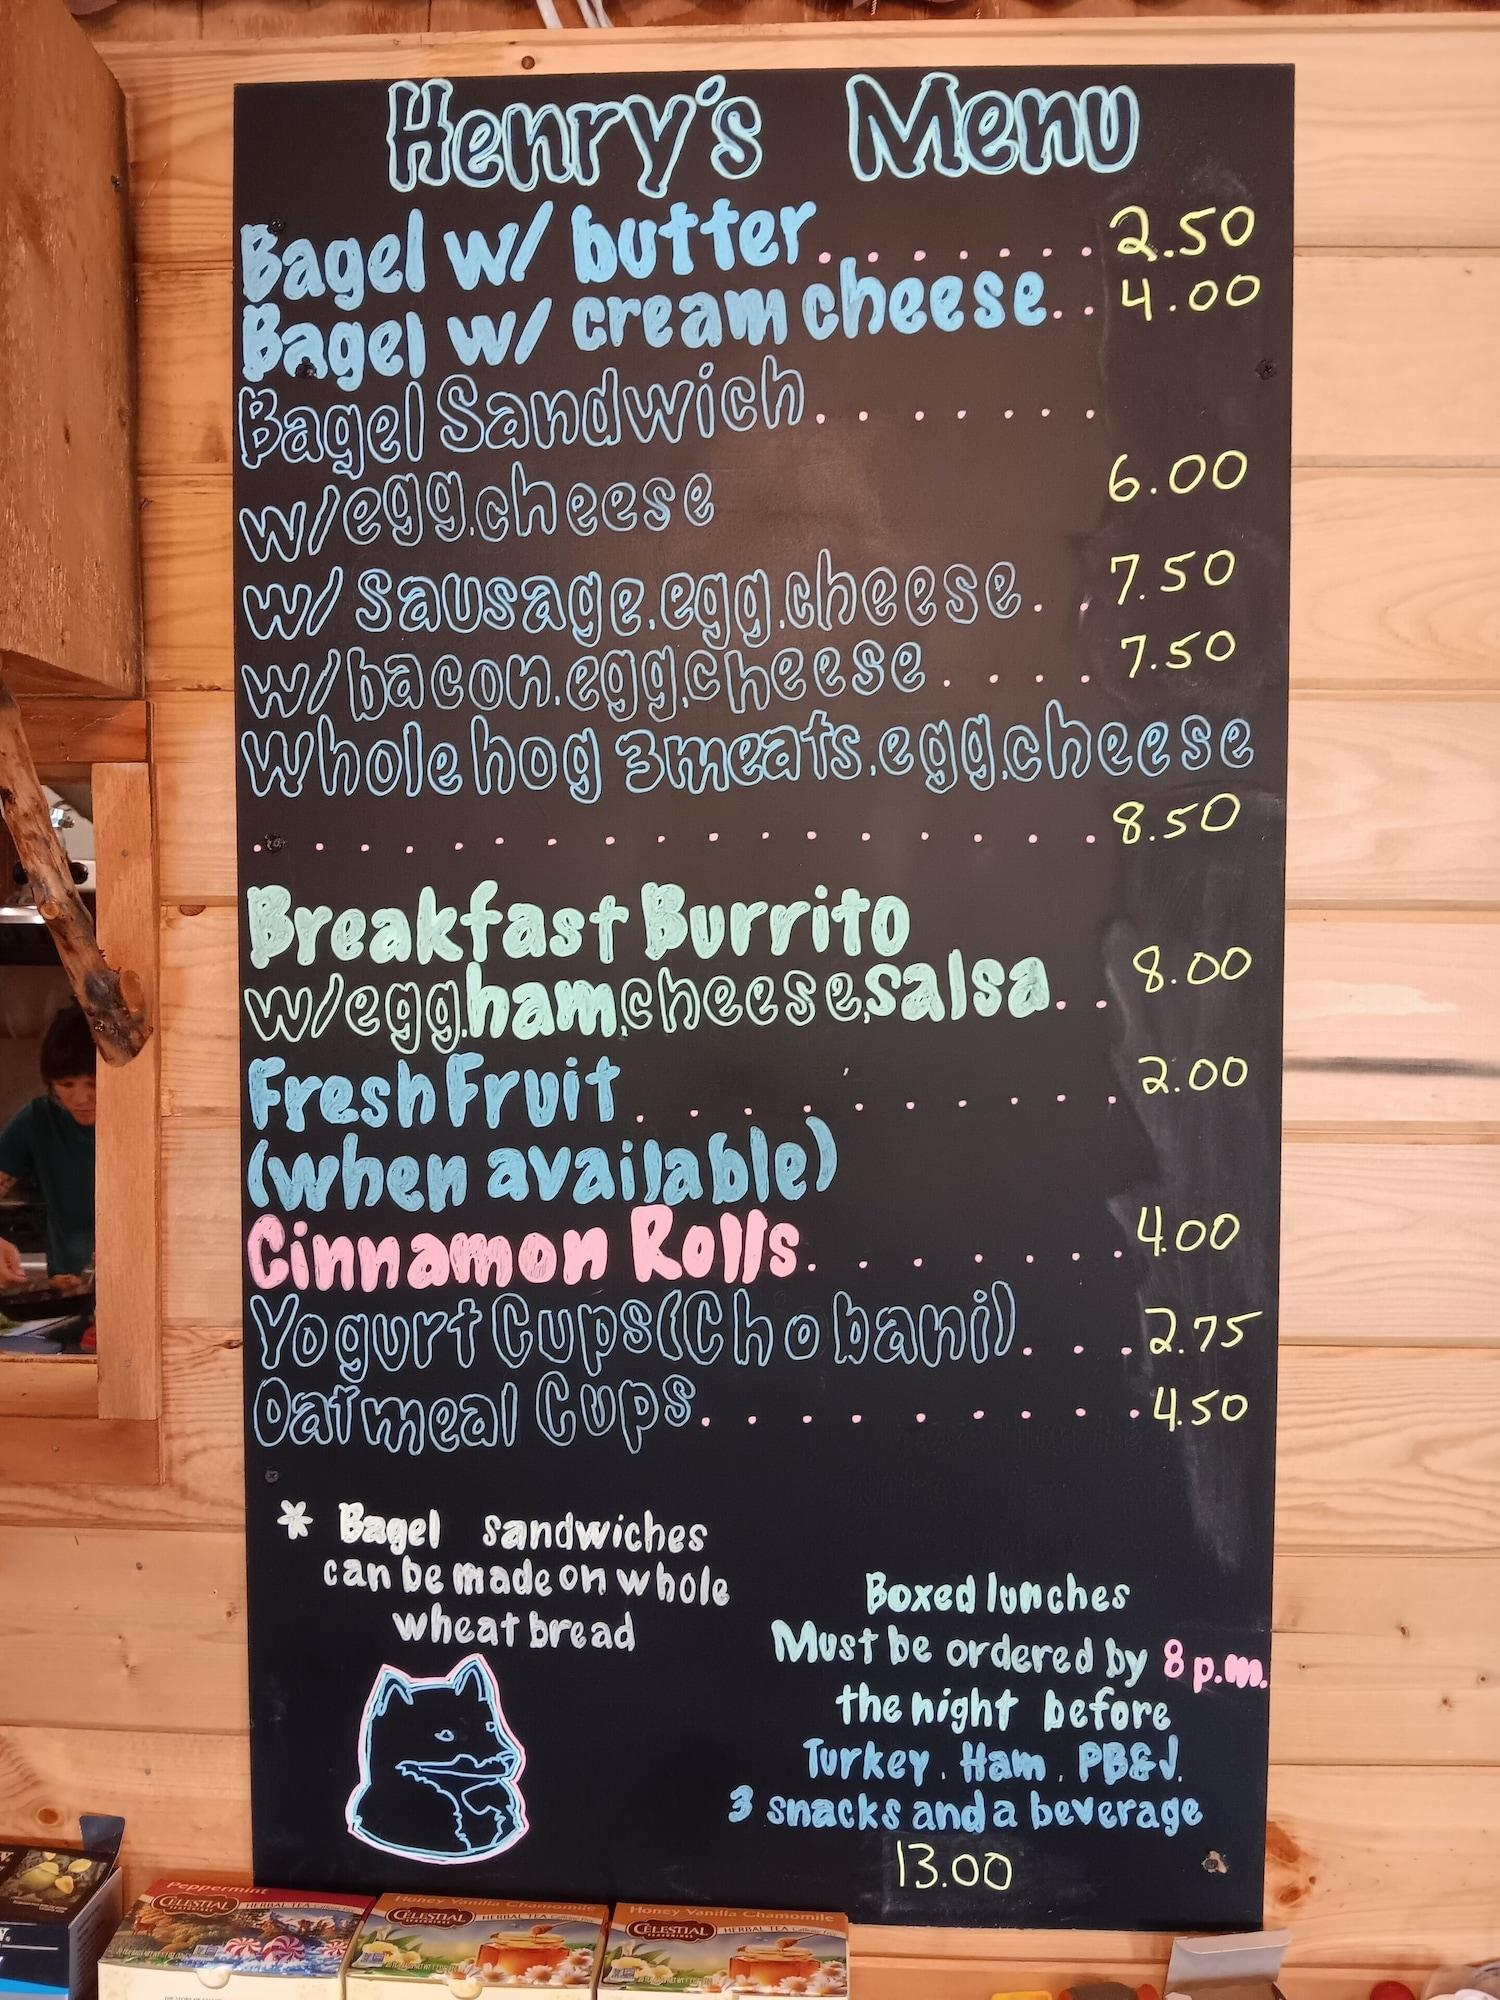 Henry's Menu
Bagel w/ butter. . . . . . . 2.50
Bagel w/ cream cheese. . 4.00
Bagel Sandwich. . . . . . .
w/egg,cheese 6.00
w/ sausage,egg,cheese. . 7.50
w/bacon,egg,cheese. . . . 7.50
Whole hog 3meats,egg,cheese
. . . . . . . . . . . . . . . . . . 8.50
Breakfast Burrito
w/egg,ham,cheese,salsa. . 8.00
Fresh Fruit. . . . . . . . . . 2.00
(when available)
Cinnamon Rolls. . . . . . . . 4.00
Yogurt Cups(Chobani). . . 2.75
Oatmeal Cups. . . . . . . . . 4.50
* Bagel sandwiches
can be made on whole
wheat bread
Boxed lunches
Must be ordered by 8 p.m.
the night before
Turkey, Ham, PB&J,
3 snacks and a beverage
13.00
Peppermint
CELESTIAL
HERBAL TEA
Honey Vanilla Chamomile
CELESTIAL
HERBAL TEA
Honey Vanilla Chamomile
CELESTIAL
HERBAL TEA